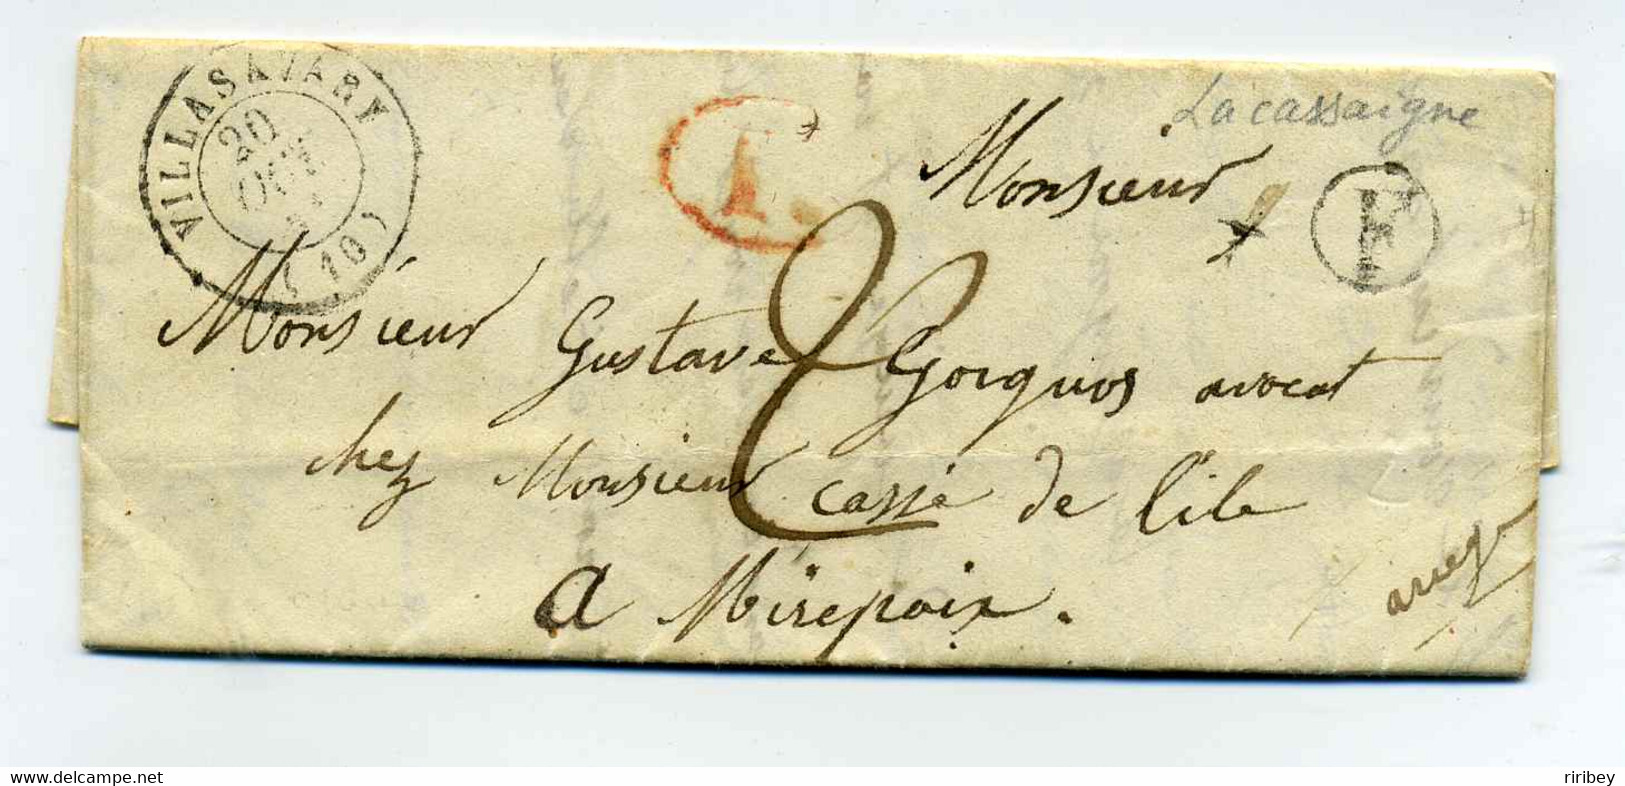 VILLASAVARY
20
(10)
1.
Lacassaigne
Monsieur
F
Monsieur Gustave Gorguos avocat
2
chez Monsieur Cassé de l'ile
a Mirepoix.
delcampe.net
riribey